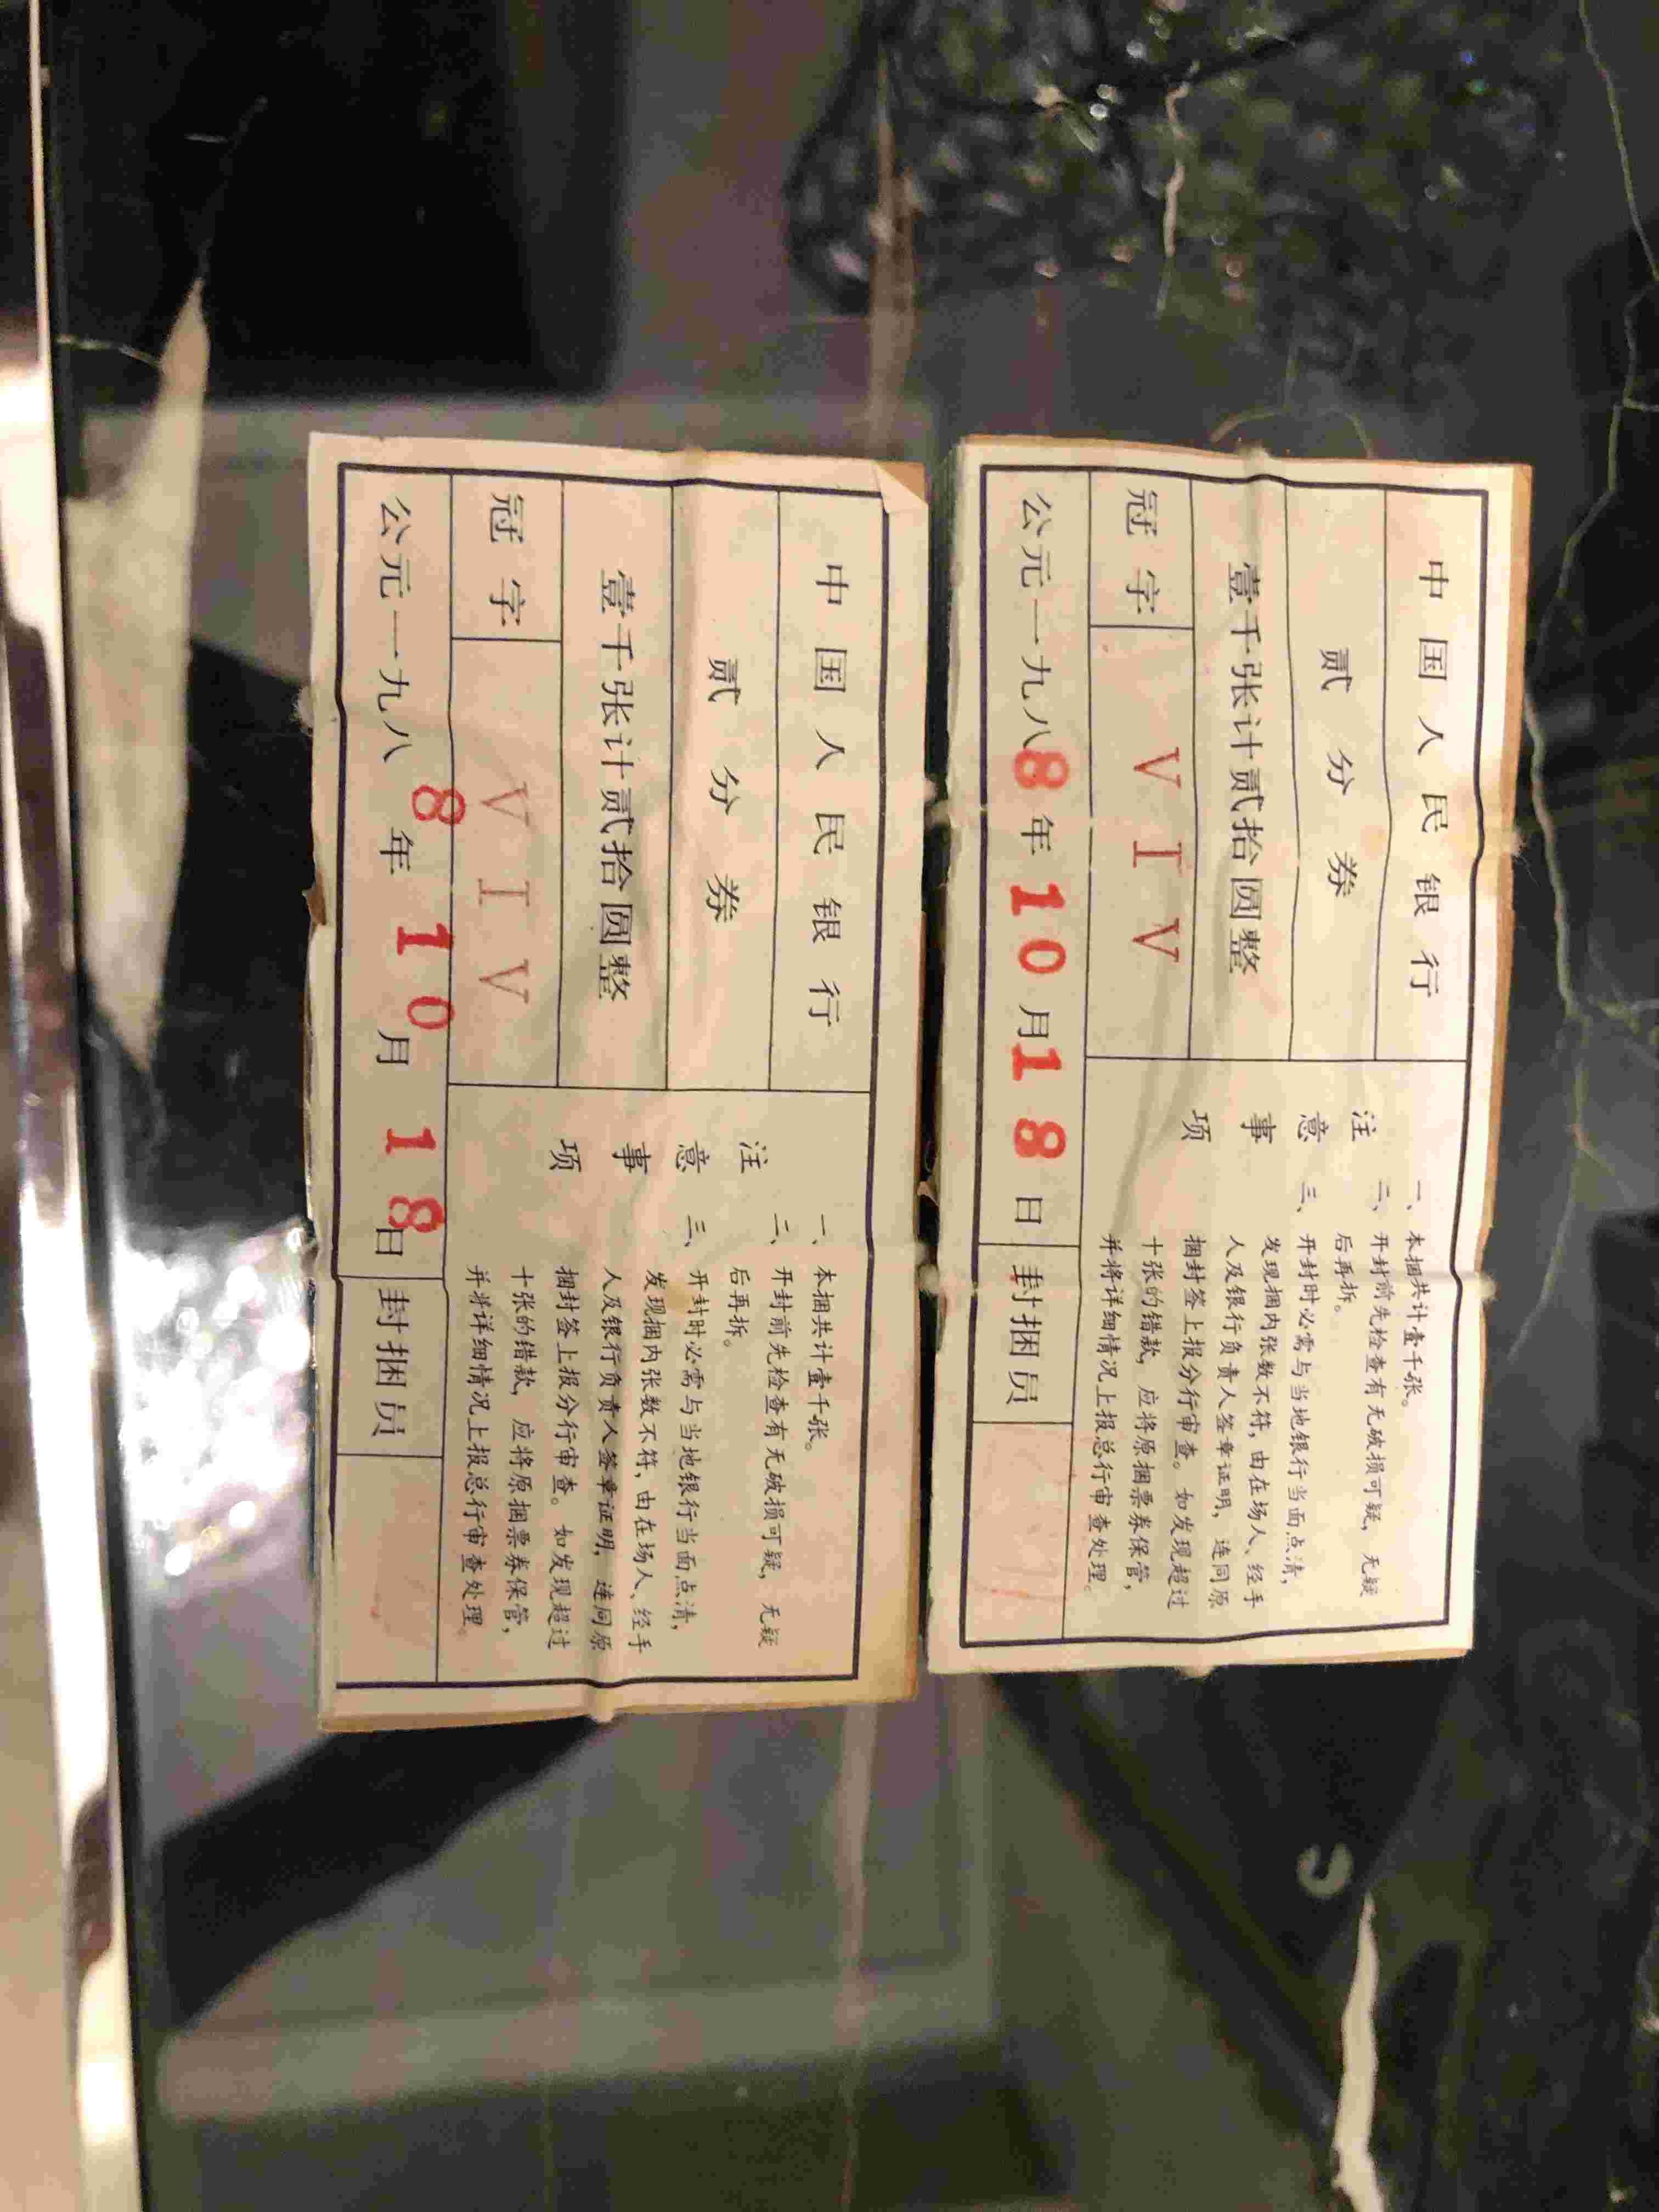 中国人民银行
贰分券
壹千张计贰拾圆整
冠字 V I V
公元一九八8年10月18日 封捆员
注意事项
一、本捆共计壹千张。
二、开封前先检查有无破损可疑，无疑
后再拆。
三、开封时必需与当地银行当面点清，
发现捆内张数不符，由在场人、经手
人及银行负责人签章证明，连同原
捆封签上报分行审查。如发现超过
十张的错款，应将原捆票券保管，
并将详细情况上报总行审查处理。
中国人民银行
贰分券
壹千张计贰拾圆整
冠字 V I V
公元一九八8年10月18日 封捆员
注意事项
一、本捆共计壹千张。
二、开封前先检查有无破损可疑，无疑
后再拆。
三、开封时必需与当地银行当面点清，
发现捆内张数不符，由在场人、经手
人及银行负责人签章证明，连同原
捆封签上报分行审查。如发现超过
十张的错款，应将原捆票券保管，
并将详细情况上报总行审查处理。